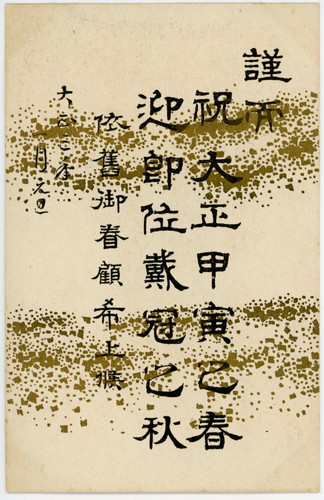 謹而
祝大正甲寅之春
迎即位戴冠之秋
依舊御眷顧希上候
大正三年
一月元旦